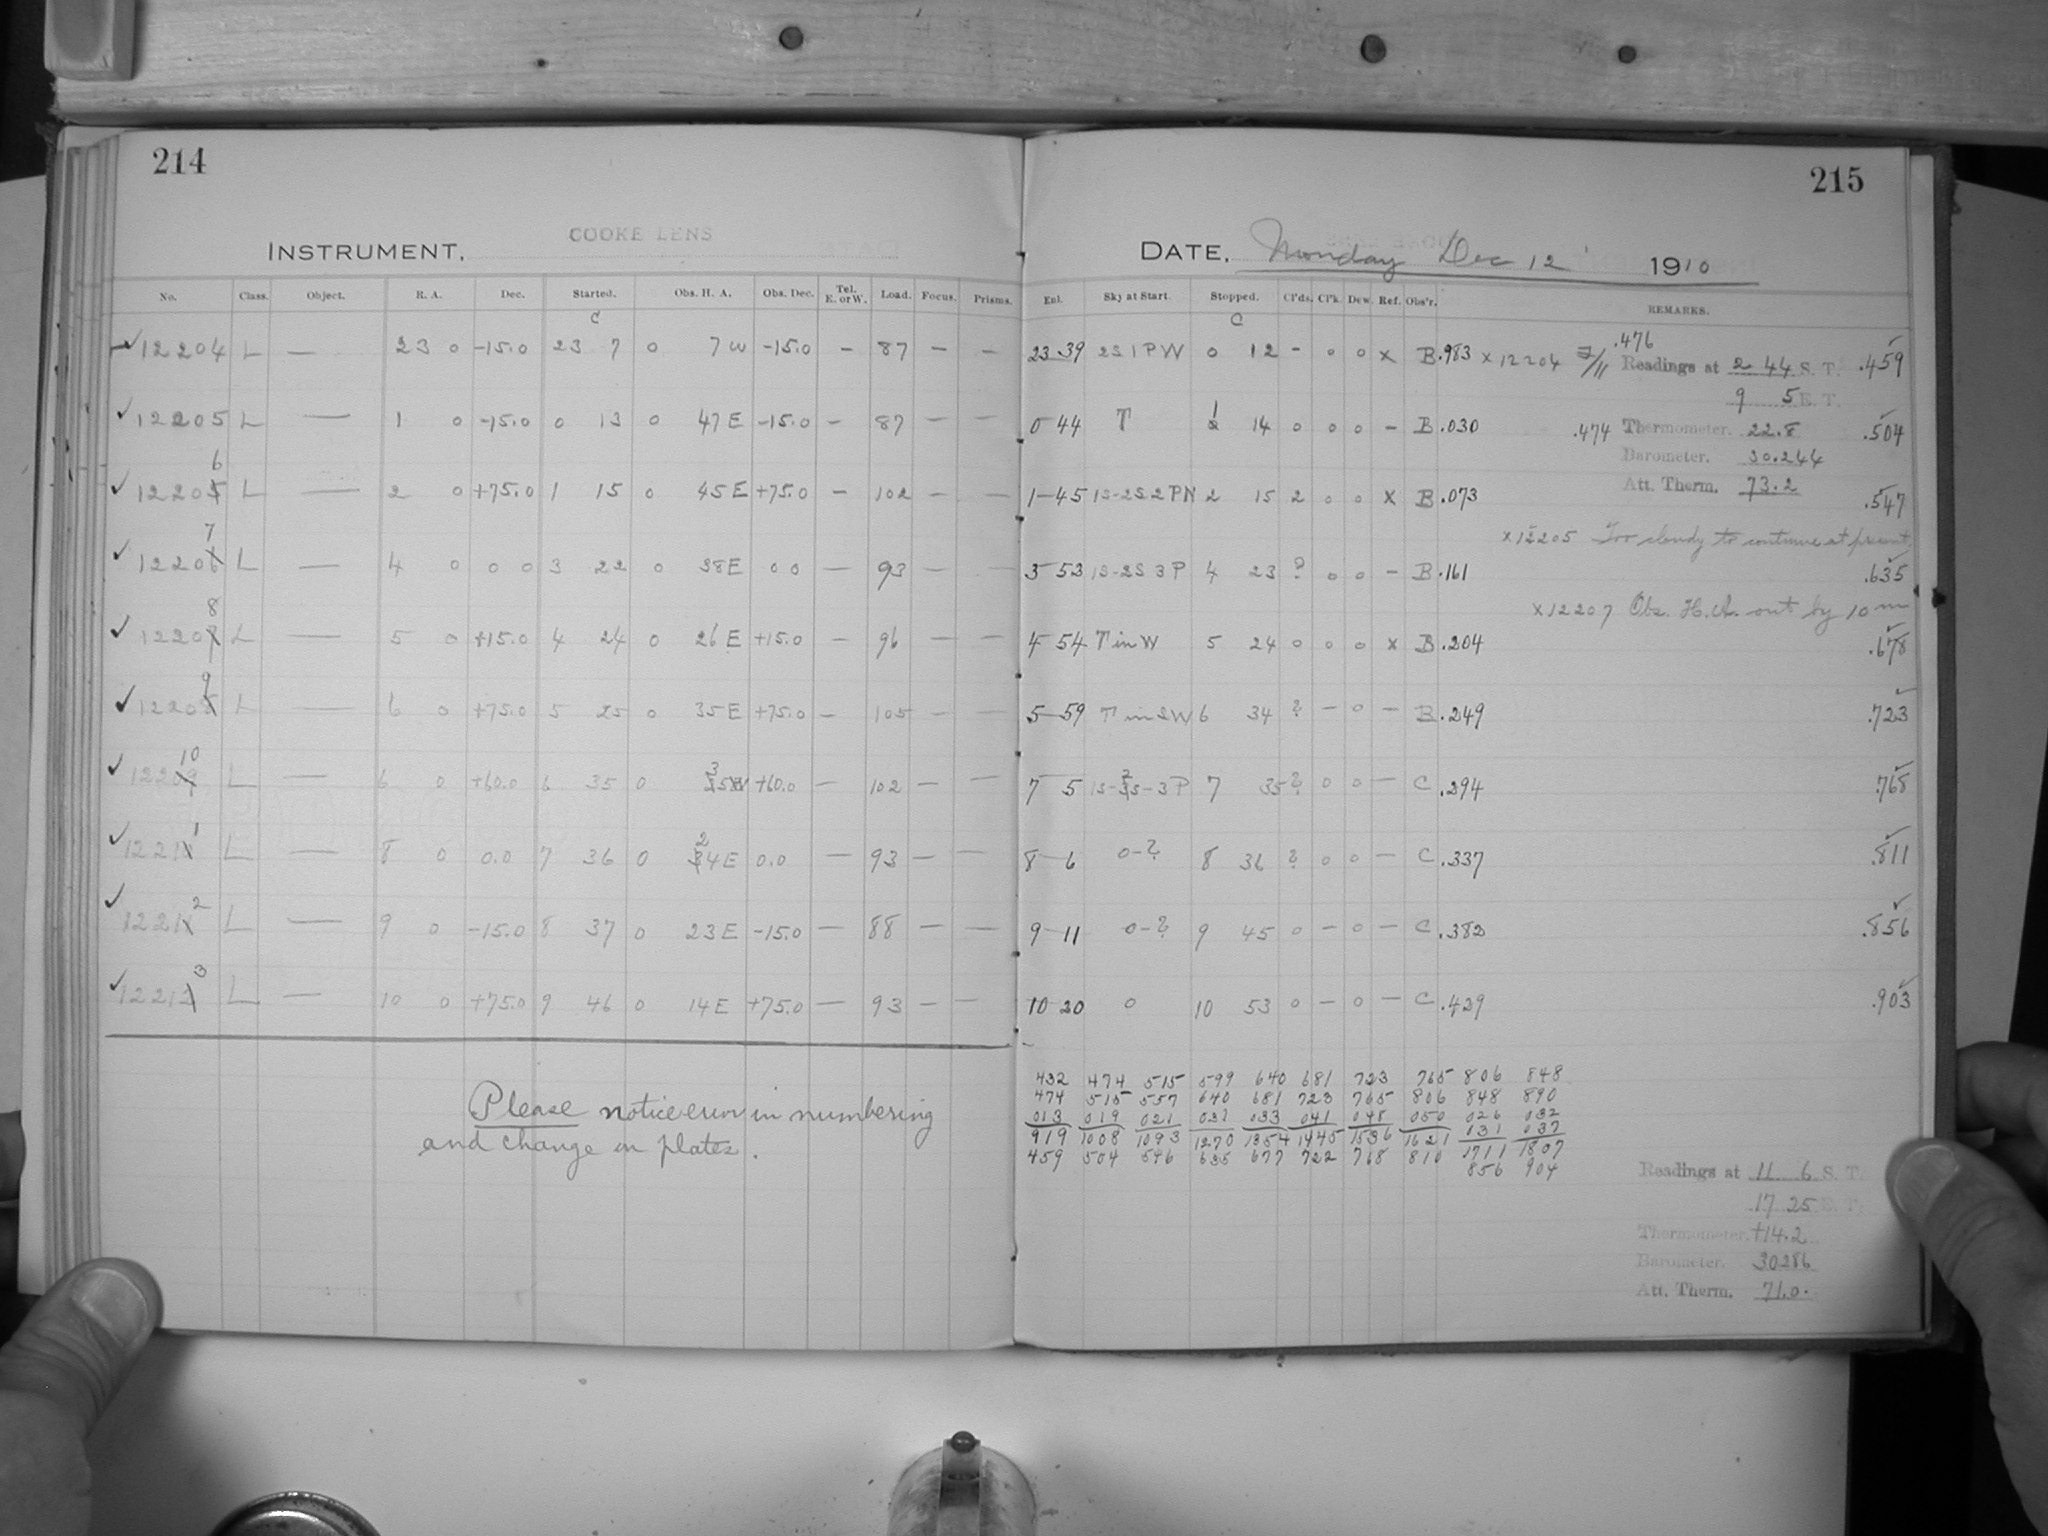 214
COOKE LENS
INSTRUMENT.
No. Class. Object. R. A. Dec. Started. Obs. H. A. Obs. Dec. Tel. E. or W. Load. Focus. Prisms.
C
12204 L — 23 0 -15.0 23 7 0 7 W -15.0 - 87 - -
12205 L — 1 0 -15.0 0 13 0 47 E -15.0 - 87 - -
6
12205 L — 2 0 +75.0 1 15 0 45 E +75.0 - 102 - -
7
12206 L — 4 0 0 0 3 22 0 38 E 0 0 — 93 - -
8
12207 L — 5 0 +15.0 4 24 0 26 E +15.0 - 96 - -
9
12208 L — 6 0 +75.0 5 25 0 35 E +75.0 - 105 - -
10
12209 L — 6 0 +60.0 6 35 0 35 W +60.0 — 102 - -
1 2
12210 L — 8 0 0.0 7 36 0 34 E 0.0 — 93 - -
2
12211 L — 9 0 -15.0 8 37 0 23 E -15.0 — 88 - -
3
12212 L — 10 0 +75.0 9 46 0 14 E +75.0 — 93 - -
Please notice error in numbering
and change on plates.
215
DATE, Monday Dec 12 1910
Enl. Sky at Start. Stopped. Cl'ds. Cl'k. Dew. Ref. Obs'r. REMARKS.
C
.476
23 39 2S 1 P W 0 12 - 0 0 x B .983 x 12204 Readings at 2 44 S. T. .459
9 5 E. T.
0 44 T 1 14 0 0 0 - B .030 .474 Thermometer. 22.8 .504
Barometer. 30.244
1-45 1S-2S 2 P N 2 15 2 0 0 x B .073 Att. Therm. 73.2 .547
x12205 Too cloudy to continue at present
3 53 1S-2S 3 P 4 23 ? 0 0 - B .161 .635
x12207 Obs. H.A. out by 10 m
4 54 T in W 5 24 0 0 0 x B .204 .678
5-59 T in SW 6 34 ? - 0 - B .249 .723
7 5 1S-2S-3 P 7 35 ? 0 0 — C .294 .768
8-6 0-? 8 36 ? 0 0 — C .337 .811
9-11 0-? 9 45 0 - 0 - C .382 .856
10 20 0 10 53 0 - 0 - C .429 .903
432 474 515 599 640 681 723 765 806 848
474 515 557 640 681 723 765 806 848 890
013 019 021 031 033 041 048 050 026 032
919 1008 1093 1270 1354 1445 1536 1621 031 037
459 504 546 635 677 722 768 810 1711 1807
856 904
Readings at 11 6 S. T.
17 25 E. T.
Thermometer. +14.2
Barometer. 30286
Att. Therm. 71.0.